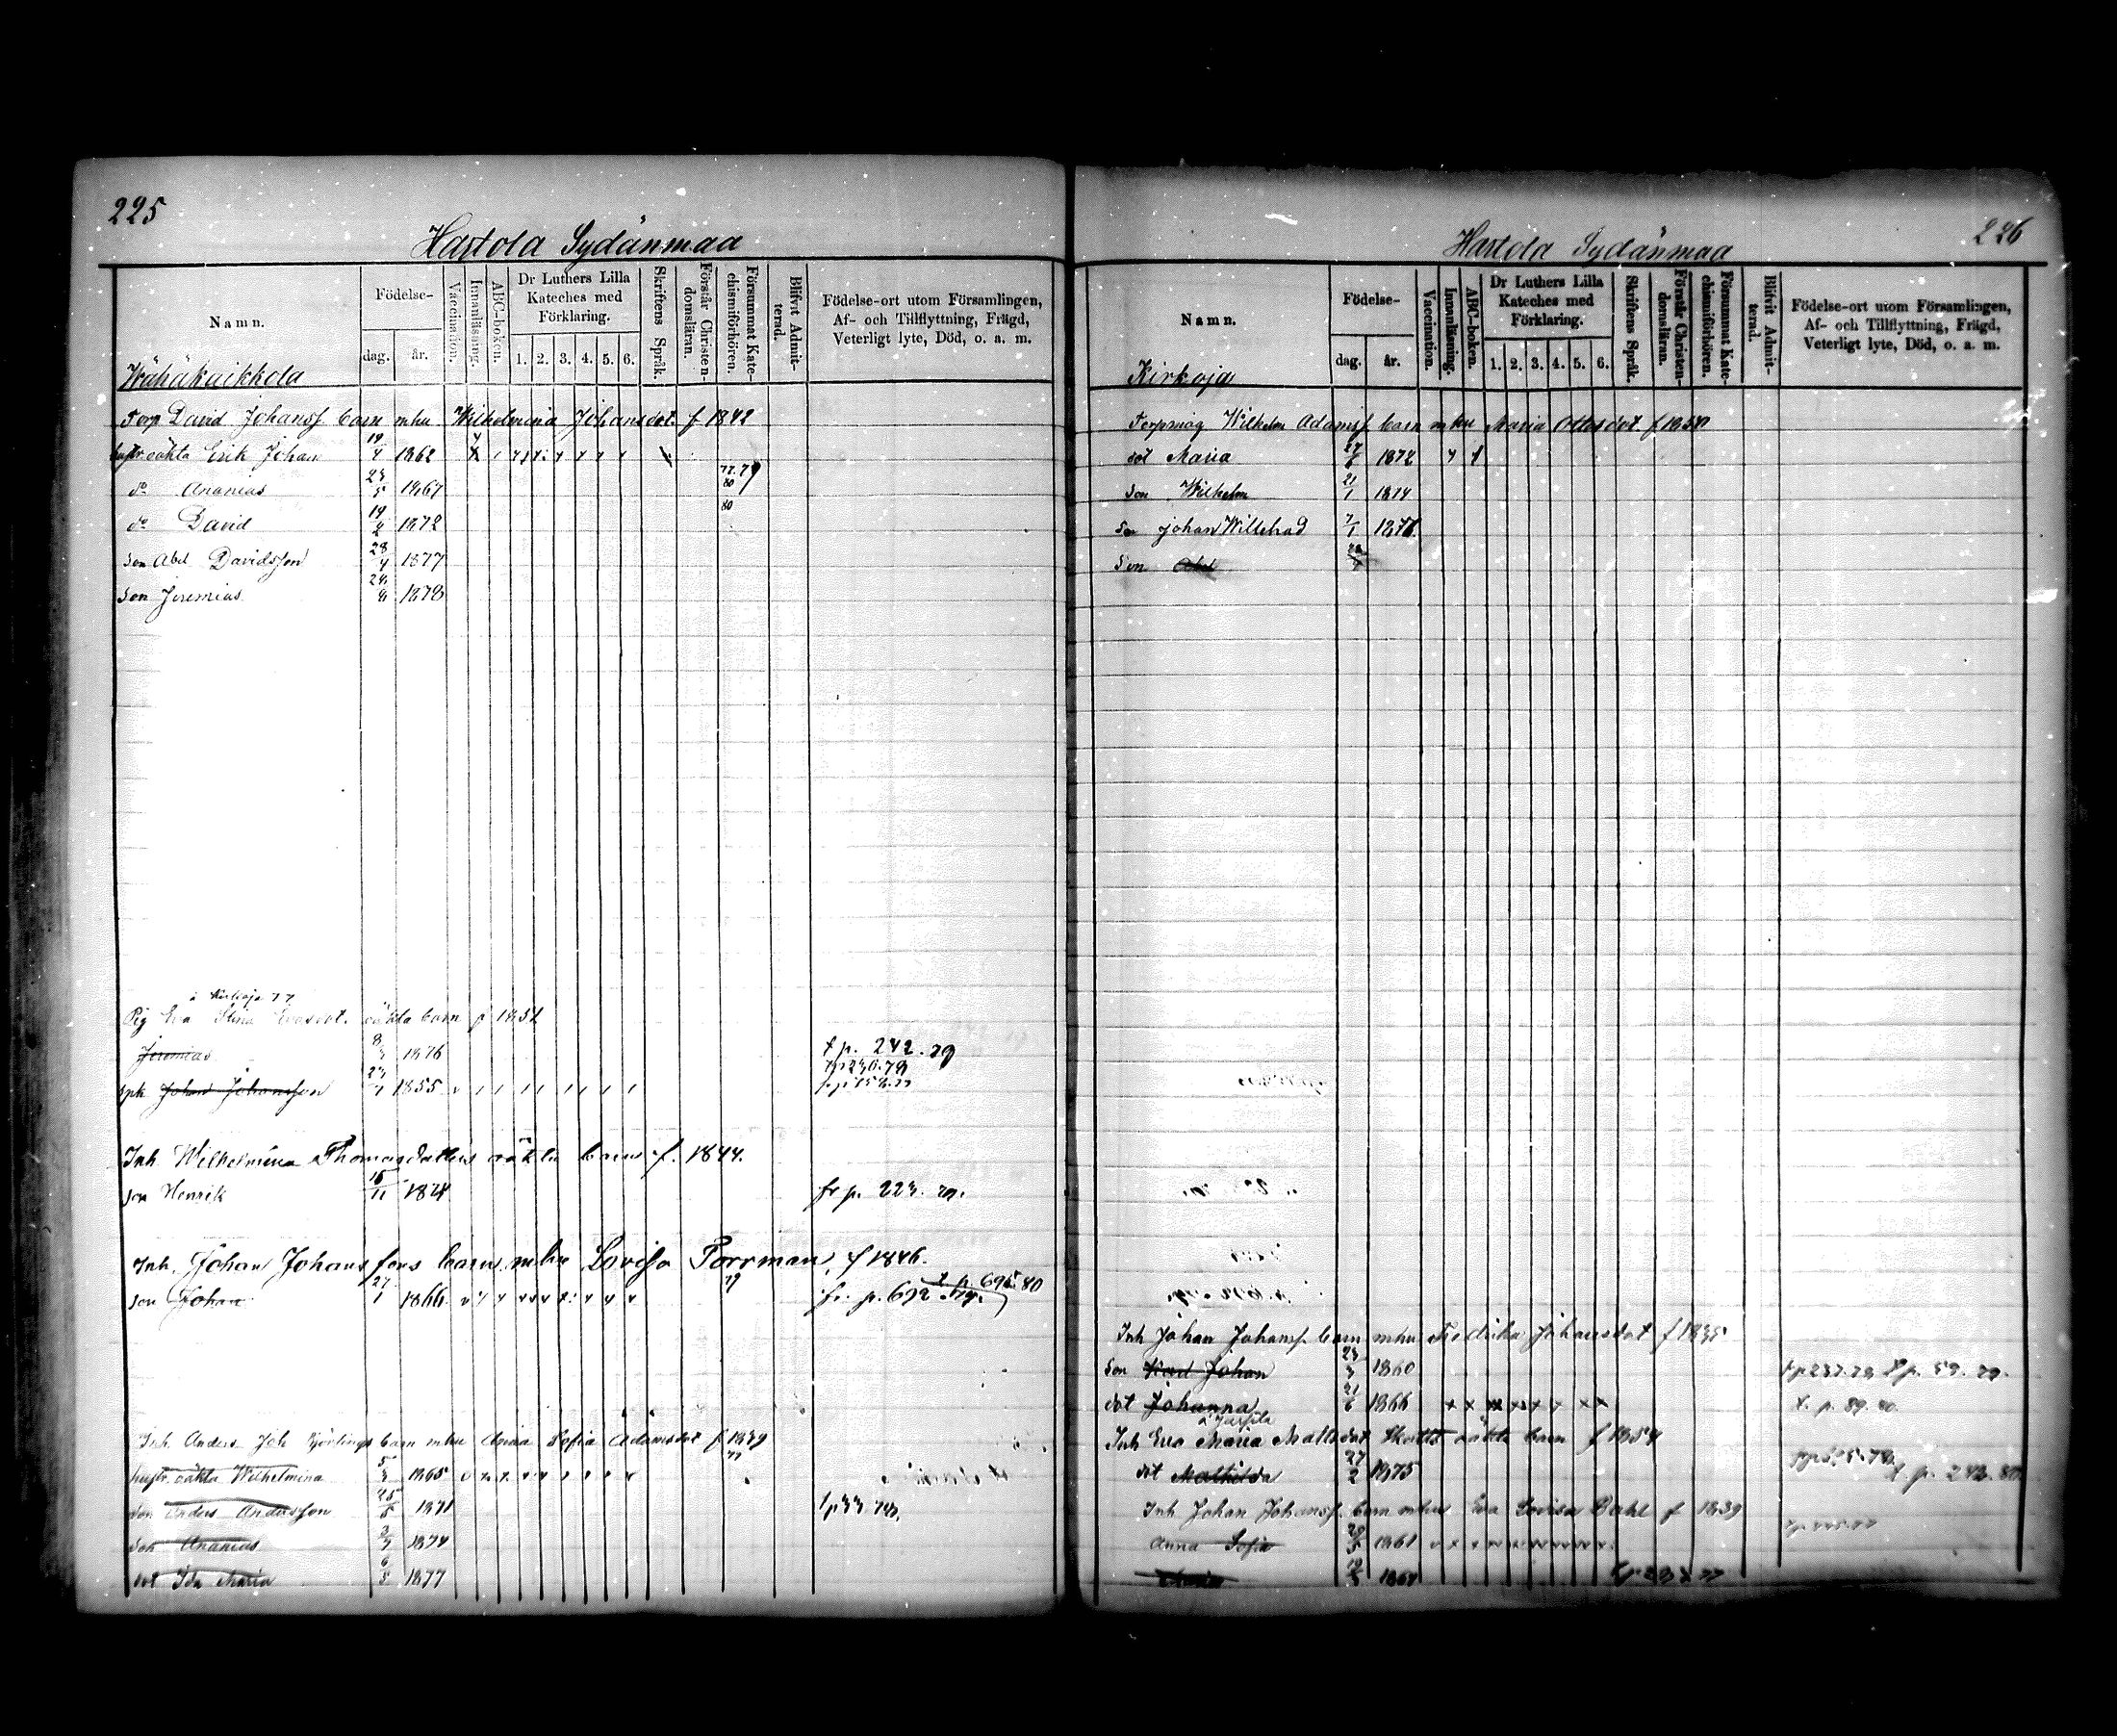 225
Hartola Sydänmaa
Namn.
Födelse-
dag.
år.
Vaccination.
Innanläsning.
ABC-boken.
Dr Luthers Lilla
Kateches med
Förklaring.
1. 2. 3. 4. 5. 6.
Skriftens Språk.
Förstår Christen-
domsläran.
Försummat Kate-
chismiförhören.
Blifvit Admit-
terad.
Födelse-ort utom Församlingen,
Af- och Tillflyttning, Frägd,
Veterligt lyte, Död, o. a. m.
Wähäkaikkola
Torp David Johansf. barn mhu Wilhelmina Johansdot. f 1842
oäkta Erik Johan 19/4 1862
do Ananias 23/5 1867 77.79 80
do David 19/2 1872 80
Son Abel Davidsson 28/4 1877
Son Jeremias 24/8 1878
Pig Eva Stina oäkta barn f 1852
Jeremias 8/3 1876 t p. 242. 79
Johan Johansson 1855
Inh. Wilhelmina Thomasdotters oäkta barn f. 1844.
son Henrik 15/11 1874 fr p. 223. 79.
Inh. Johan Johanssons barn mhu Lovisa Porrman, f 1846.
son Johan 27/1 1866 79 fr. p. 692 79. t p 695. 80
Inh. Anders Joh barn mhu Anna Sofia Adamsdot f 1839
oäkta Wilhelmina 5/3 1865 77
son Anders Andersson 25/5 1871
son Ananias 3/7 1874
dot Ida Maria 6/5 1877
226
Hartola Sydänmaa
Namn.
Födelse-
dag.
år.
Vaccination.
Innanläsning.
ABC-boken.
Dr Luthers Lilla
Kateches med
Förklaring.
1. 2. 3. 4. 5. 6.
Skriftens Språk.
Förstår Christen-
domsläran.
Försummat Kate-
chismiförhören.
Blifvit Admit-
terad.
Födelse-ort utom Församlingen,
Af- och Tillflyttning, Frägd,
Veterligt lyte, Död, o. a. m.
Kirkoja
Torpmåg Wilhelm Adamsf barn mhu Maria Ottosdot f 1850
dot Maria 1872
Son Wilhelm 21/1 1874
Son Johan Willehad 7/1 1876.
Son Abel
Inh Johan Johansf. barn mhu Fredrika Johansdot f 1835
Son Karl Johan 23/3 1860 p. 59. 79.
dot Johanna 21/6 1866 t. p. 89. 80.
Inh Eva Maria Mattsdot oäkta barn f 1854
dot Mathilda 27/2 1875 t p. 242. 80.
Inh Johan Johansf. barn mhu Eva Lovisa Dahl f 1839
Anna Sofia 1861
1864